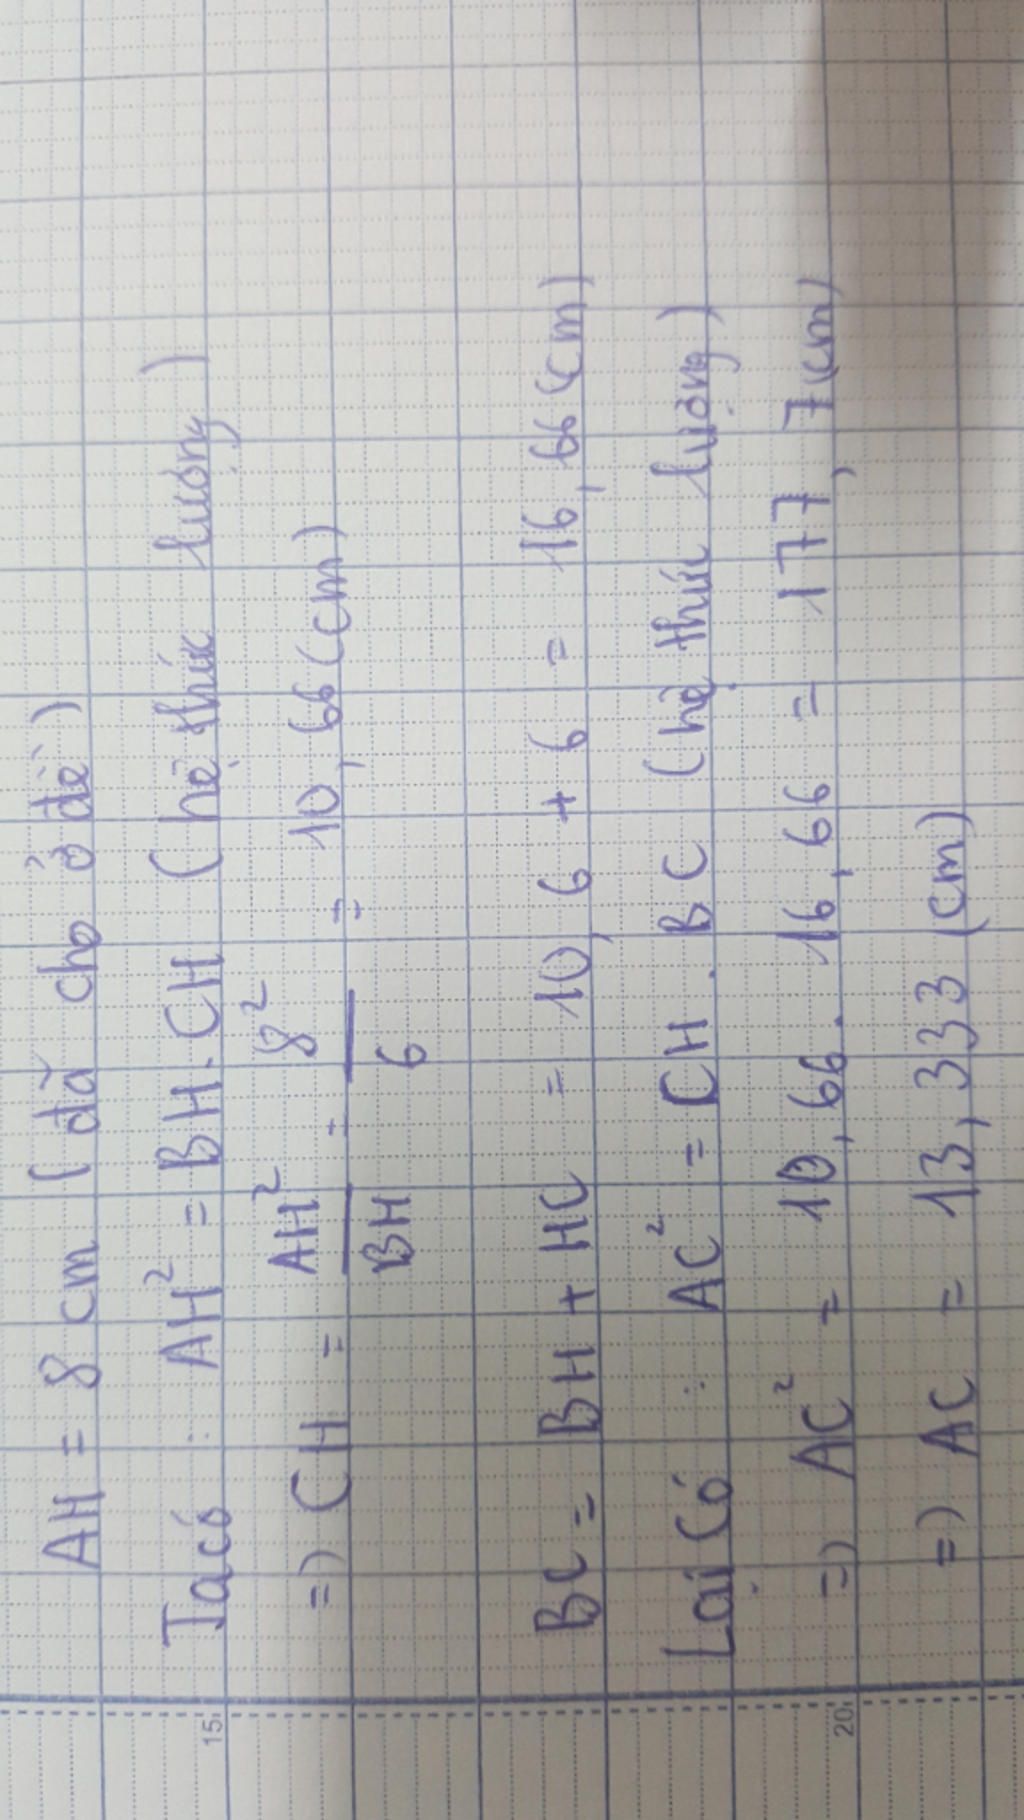 AH = 8 cm (đã cho ở đề)
Ta có : AH² = BH.CH (hệ thức lượng)
=) CH = AH²/BH = 8²/6 = 10,66 (cm)
BC = BH + HC = 10,6 + 6 = 16,66 (cm)
Lại Có : AC² = CH.BC (hệ thức lượng)
=) AC² = 10,66.16,66 = 177,7 (cm)
=) AC = 13,333 (cm)
15
20